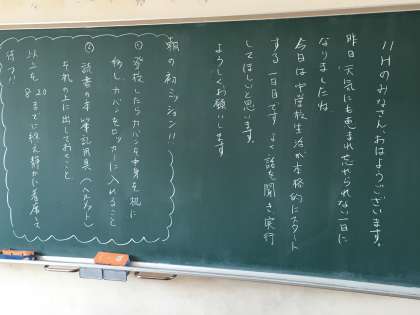 11Hのみなさん、おはようございます。
昨日、天気にも恵まれ忘れられない一日に
なりましたね。
今日は中学校生活が本格的にスタート
する一日目です。よく話を聞き実行
してほしいと思います。
よろしくお願いします
朝の初ミッション!!
① 登校したらカバンを中身を机に
移し、カバンをロッカーに入れること
② 読書の本、筆記用具(ヘルメット)
それの上に出しておくこと
以上を 8:20 までに終え静かに着席して
待つ!!